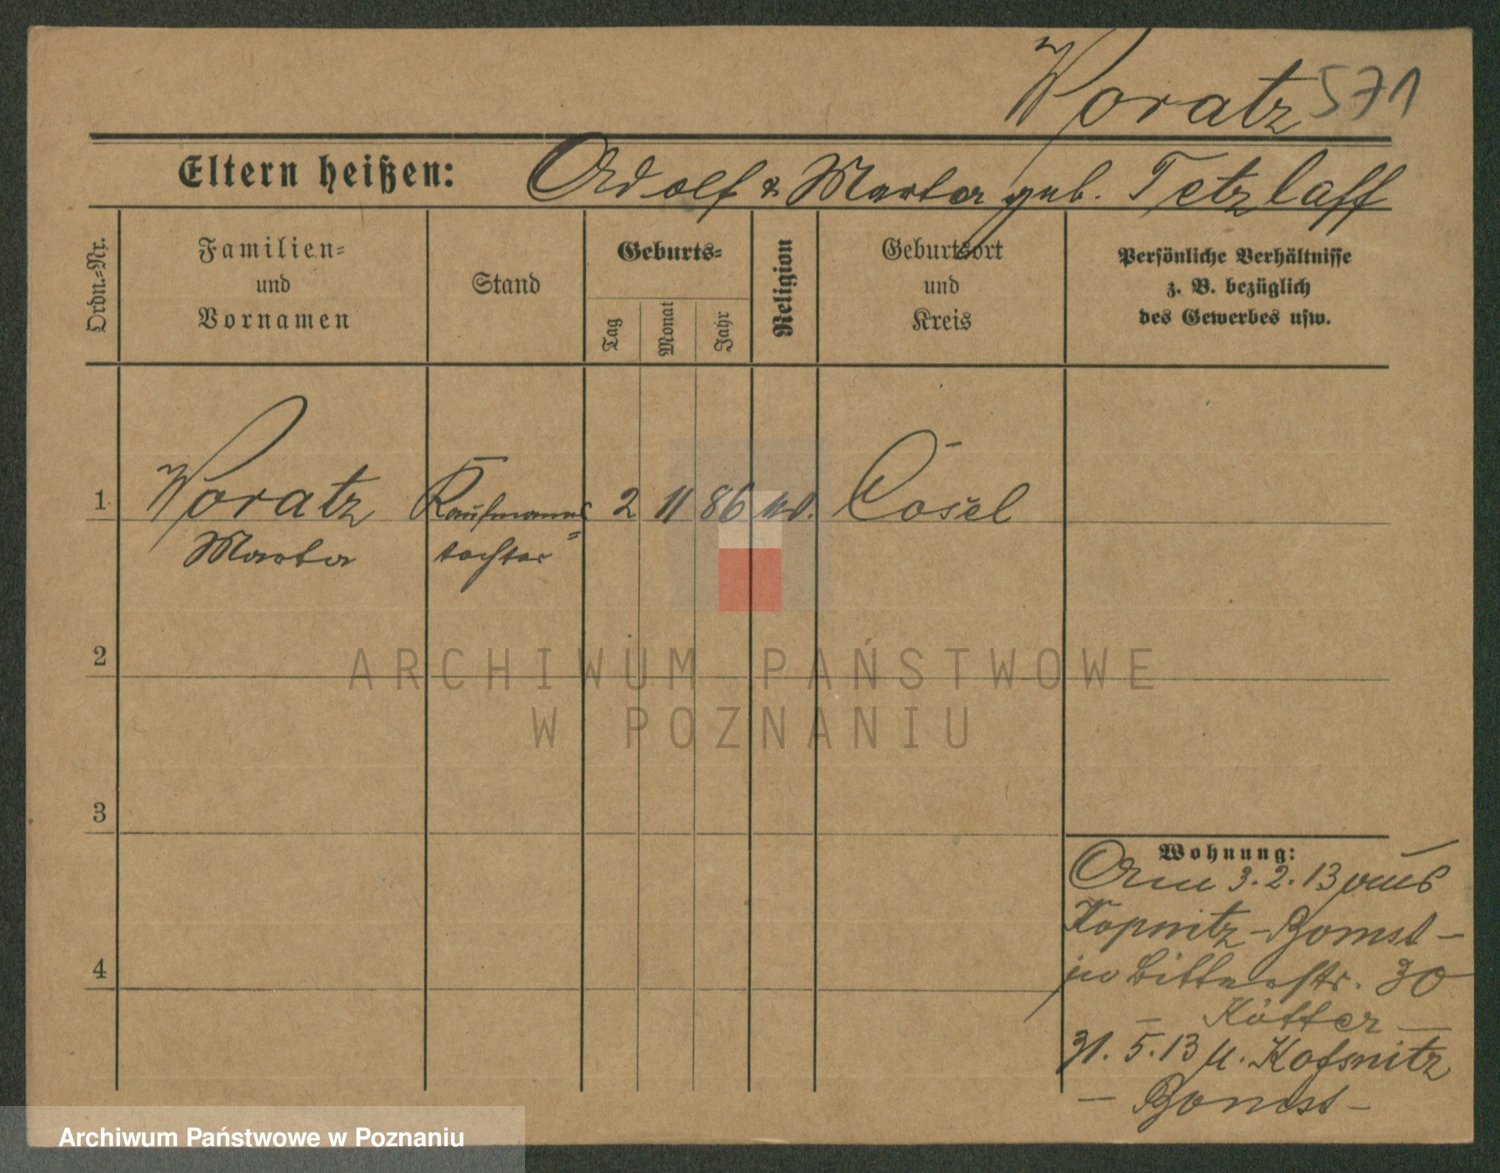 Woratz 571
Eltern heißen: Adolf & Marta geb. Tetzlaff
Ordn.-Nr.
Familien-
und
Vornamen
Stand
Geburts-
Tag
Monat
Jahr
Religion
Geburtsort
und
Kreis
Persönliche Verhältnisse
z. B. bezüglich
des Gewerbes usw.
1 Woratz Kaufmanns 2 11 86 Cosel
Marta tochter
2
ARCHIWUM PAŃSTWOWE
W POZNANIU
3
Wohnung:
3.2.13 aus
Kopnitz - Bomst -
in Bitterstr. 30
- Kötter -
31.5.13 n. Kopnitz
- Bomst -
4
Archiwum Państwowe w Poznaniu